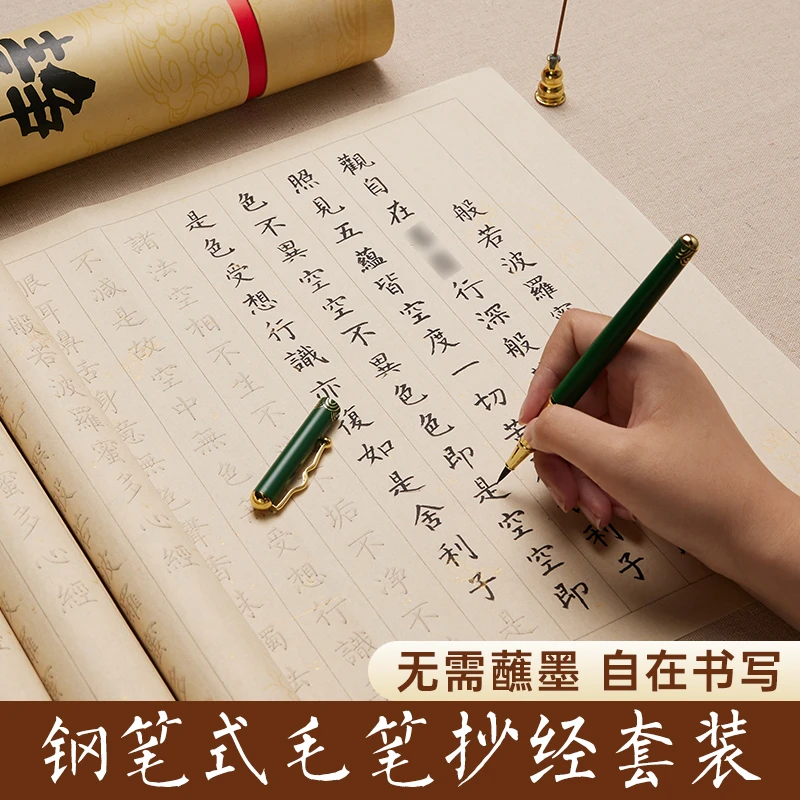 般若波羅
觀自在
行深般
照見五蘊皆空度一切苦
利子
色不異空空不異色色即是空空即
是色受想行識亦復如是舍利子
諸法空相不生不
垢不淨不
不減是故空中無色
受想行識
眼耳鼻舌身意無
聲香味觸法
般若波羅蜜多心經
无需蘸墨 自在书写
钢笔式毛笔抄经套装